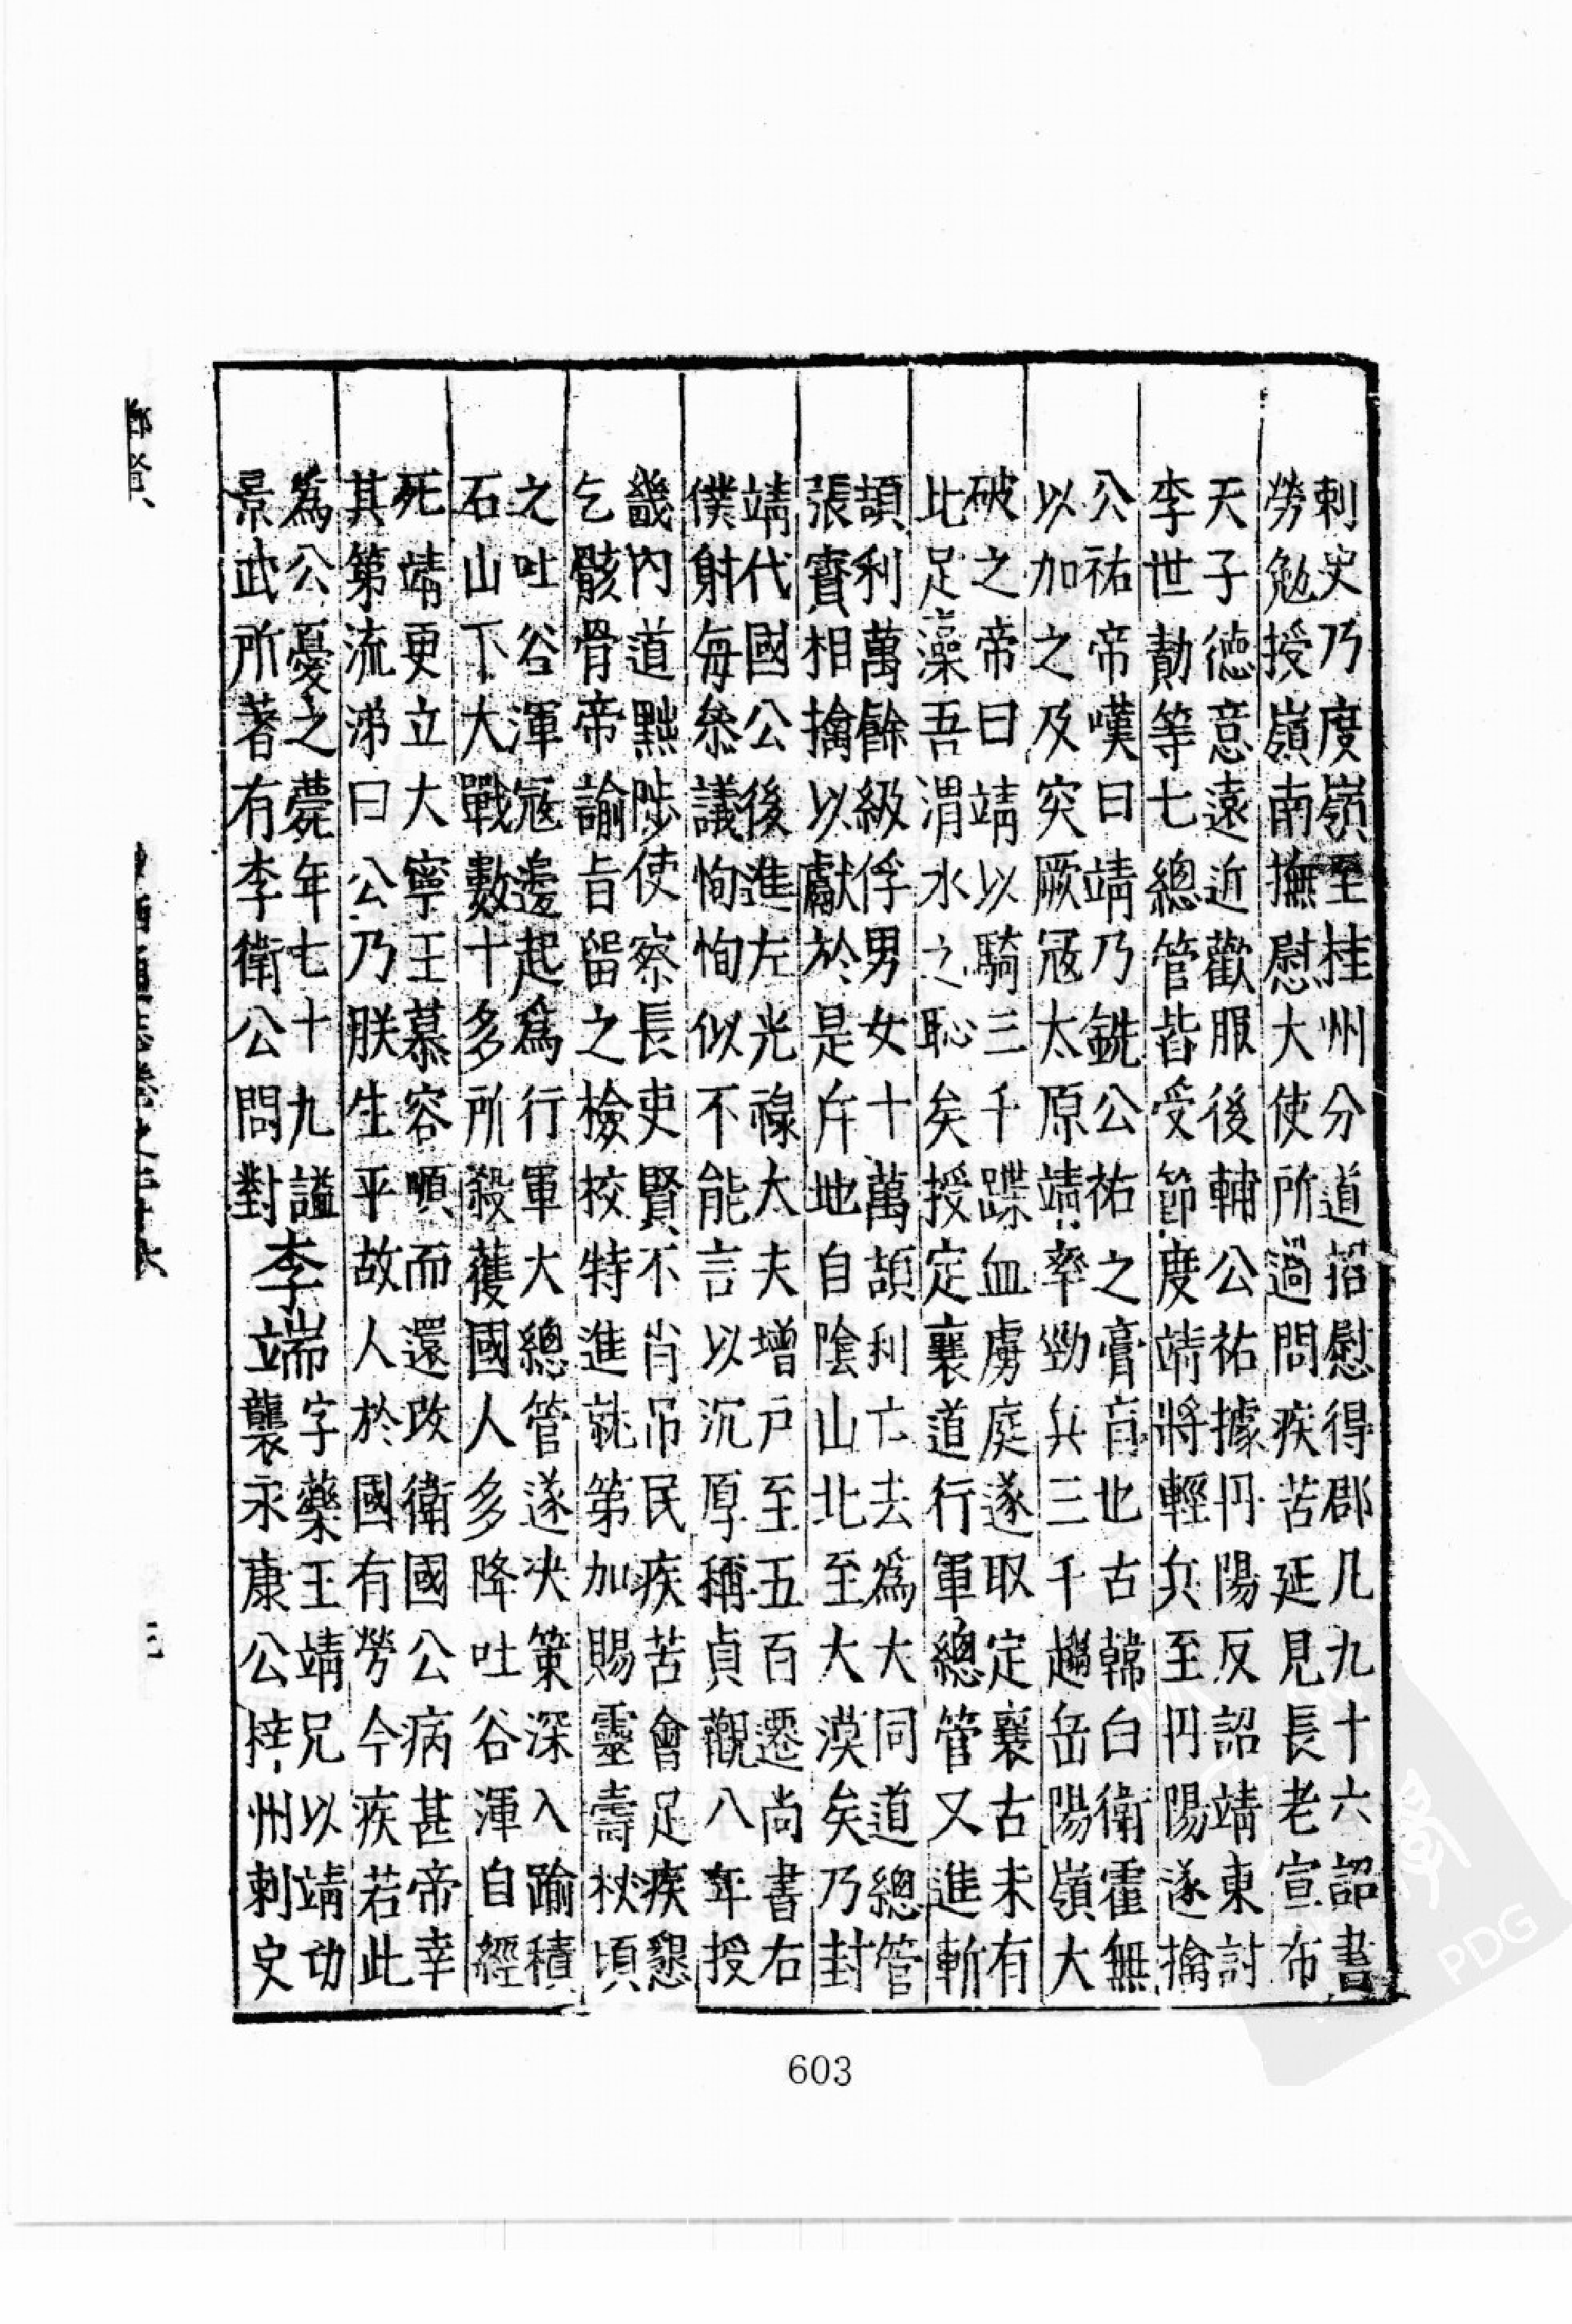 刺史乃度嶺至桂州分道招慰得郡凡九十六詔書
勞勉授嶺南撫慰大使所過問疾苦延見長老宣布
天子德意遠近歡服後輔公祐據丹陽反詔靖東討
李世勣等七總管皆受節度靖將輕兵至丹陽遂擒
公祐帝嘆曰靖乃銑公祐之膏肓也古韓白衛霍無
以加之及突厥寇太原靖率勁兵三千趨岳陽嶺大
破之帝曰靖以騎三千蹀血虜庭遂取定襄古未有
比足澡吾渭水之恥矣授定襄道行軍總管又進斬
頡利萬餘級俘男女十萬頡利亡去為大同道總管
張寶相擒以獻於是斥地自陰山北至大漠矣乃封
靖代國公後進左光祿大夫增戶至五百遷尚書右
僕射每叅議恂恂似不能言以沉厚稱貞觀八年授
畿內道黜陟使察長吏賢不肖吊民疾苦會足疾懇
乞骸骨帝諭旨留之檢校特進就第加賜靈壽杖頃
之吐谷渾寇邊起為行軍大總管遂决策深入踰積
石山下大戰數十多所殺獲國人多降吐谷渾自經
死靖更立大寧王慕容順而還改衛國公病甚帝幸
其第流涕曰公乃朕生平故人於國有勞今疾若此
為公憂之薨年七十九謚
景武所著有李衛公問對
李端
字藥王靖兄以靖功
襲永康公梓州刺史
603
PDG